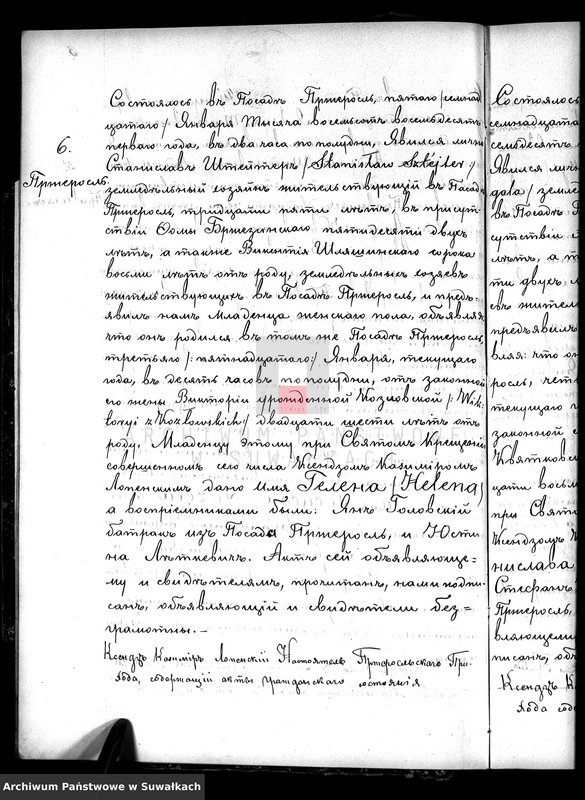 6.
Пржеросль.
Состоялось въ Посадѣ Пржеросль, пятаго /семнад
цатаго/ Января тысяча восемьсотъ восемьдесятъ
перваго года, въ два часа по полудни, Явился лично
Станиславъ Штейтеръ /Stanisław Sztejter/
земледѣльный хозяинъ жительствующій въ Посадѣ
Пржеросль, тридцати пяти лѣтъ, въ присут
ствіи Ѳомы Бржезинскаго пятидесяти двухъ
лѣтъ, а также Викентія Шляшинскаго сорока
восьми лѣтъ отъ роду, земледѣльныхъ хозяевъ
жительствующихъ въ Посадѣ Пржеросль, и предъ=
явилъ намъ Младенца женскаго пола, объявляя
что онъ родился въ томъ же Посадѣ Пржеросль,
третьяго /:пятнадцатаго:/ Января, текущаго
года, въ десять часовъ по полудни, отъ законной
его жены Викторіи урожденной Козловской /:Wik
toryi z Kozłowskich/ двадцати шести лѣтъ отъ
роду. Младенцу этому при Святомъ Крещеніи
совершенномъ сего числа Ксендзомъ Казиміромъ
Лопенскимъ дано имя Гелена /Helena/
а воспріемниками были: Янъ Головскій
батракъ изъ Посада Пржеросль, и Юсти
на Лѣткевичъ. Актъ сей объявляюще=
му и свидѣтелямъ, прочитанъ, нами подпи=
санъ, объявляющій и свидѣтели без=
грамотны.—
Ксендзъ Казиміръ Лопенскій Настоятель Пржеросльскаго При=
хода, содержащій акты гражданскаго состоянія
Состоялось
семнадцата
семьдесятъ
Явился личн
/земле
въ Посадѣ
сутствіи
лѣтъ, а т
ти двухъ л
евъ жител
предъявилъ
вляя: что он
росль, чет
текущаго г
законной е
Квятковс
цати восьм
при Свято
Ксендзомъ К
нислава
Стефанъ
Пржеросль,
вляющему
писанъ, объ
Ксендзъ К
хода сод
Archiwum Państwowe w Suwałkach